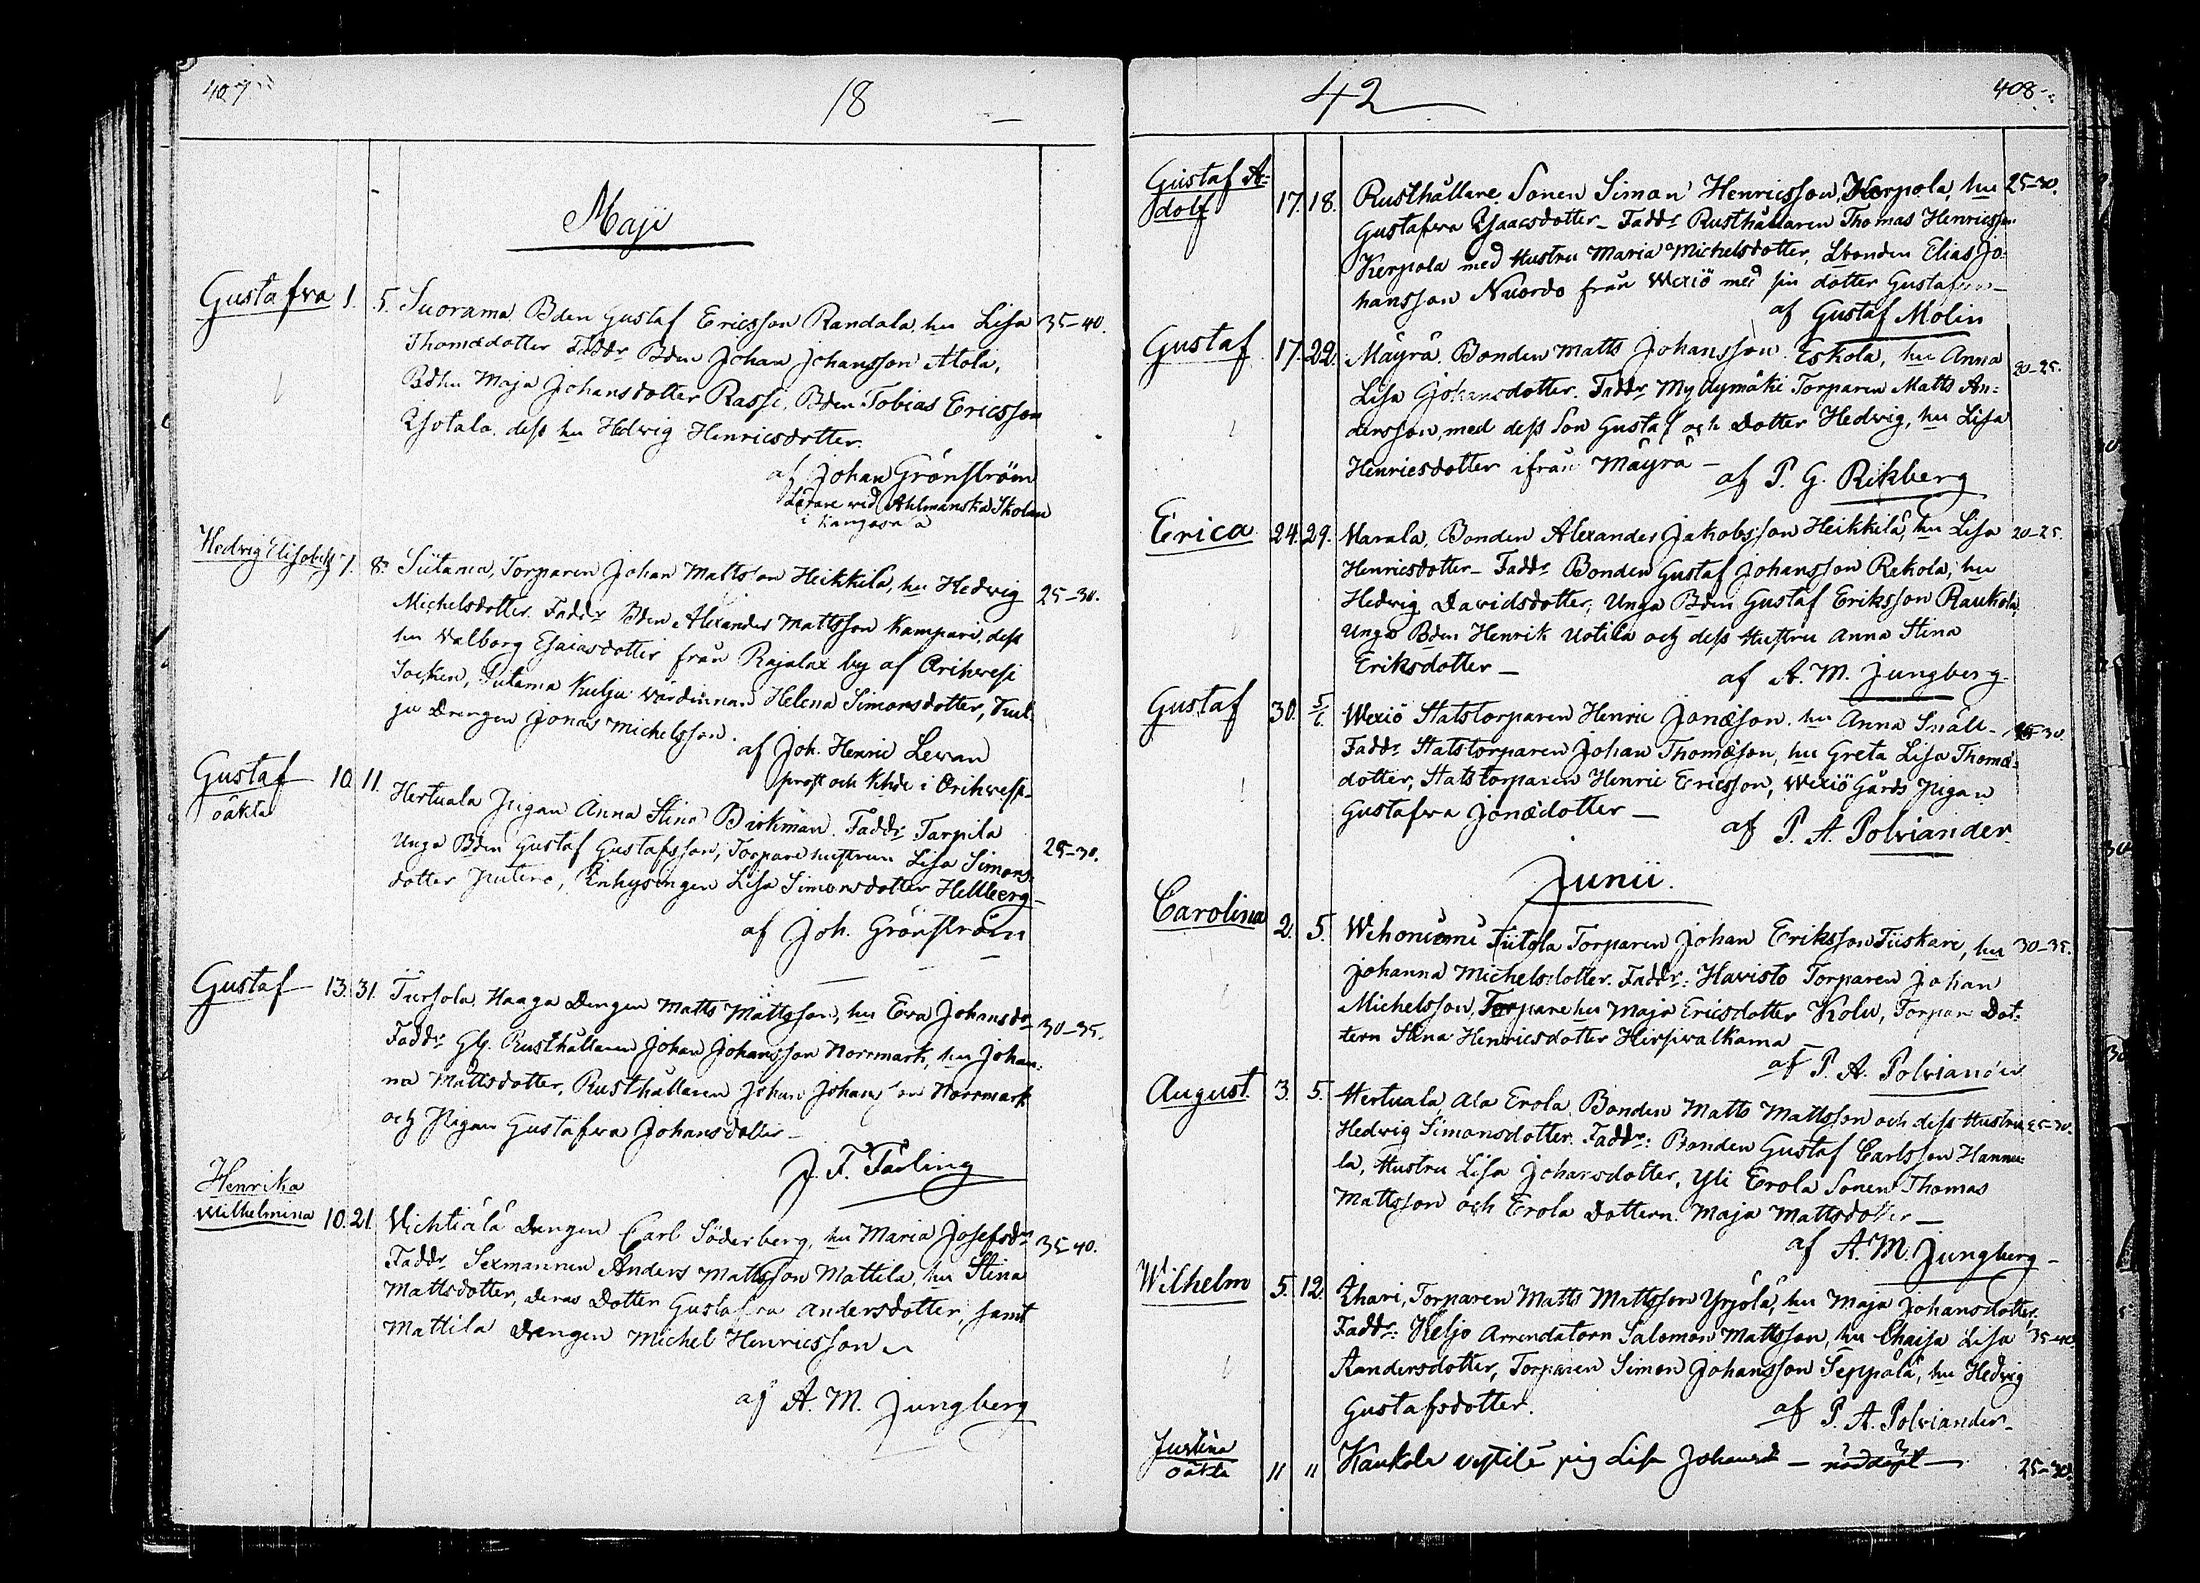 407
18
Maji
Gustafva 1. 5. Suorama Bden Gustaf Ericsson Randala, hu Lisa 35–40.
Thomædotter Faddr Bden Johan Johansson Atola,
Bdhu Maja Johansdotter Rassi, Bden Tobias Ericsson
Ysotala, dess hu Hedvig Henricsdotter.
af Johan Grönström
Lärare vid Ahlmanska Skolan
i Kangasala
Hedvig Elisabeth 7. 8. Sutama, Torparen Johan Mattsson Heikkilä, hu Hedvig 25–30.
Michelsdotter. Faddr Bden Alexander Mattsson Kampari, dess
hu Walborg Esaiasdotter från Rajalax by af Orihvesi
Socken, Sutama Kulju värdinnan Helena Simonsdotter, Kul-
ju Drengen Jonas Michelsson.
af Joh. Henric Levan
prost och Khde i Orihvesi
Gustaf oäkta 10 11. Hertuala Pigan Anna Stina Birkman. Faddr Tarpila
Unga Bden Gustaf Gustafsson, Torpare hustrun Lisa Simons- 25–30.
dotter Jutine, Enhysingen Lisa Simonsdotter Hellberg
af Joh. Grönström
Gustaf 13. 31. Tursola, Haaga Dengen Matts Mattsson, hu Eva Johansdr 30–35.
Faddr Gl. Rusthållaren Johan Johansson Norrmark, hu Johan-
na Mattsdotter, Rusthållaren Johan Johansson Norrmark
och Pigan Gustafva Johansdotter
J. F. Färling
Henrika
Wilhelmina 10. 21. Vichtiälä Dengen Carl Söderberg, hu Maria Josefsdr 35–40.
Faddr Sexmannen Anders Mattsson Mattila, hu Stina
Mattsdotter, deras Dotter Gustafva Andersdotter, samt
Mattila Drengen Michel Henricsson
af A. M. Jungberg
42
408
Gustaf A-
dolf 17. 18. Rusthållare Sonen Simon Henricsson, Kerpola, hu 25–30.
Gustafva Ysaacsdotter – Faddr Rusthållaren Thomas Henricsson
Kerpola med Hustru Maria Michelsdotter, Lbonden Elias Jo-
hansson Nuordo från Wexiö med sin dotter Gustafva
af Gustaf Molin
Gustaf 17. 22. Mäyrä. Bonden Matts Johansson Eskola, hu Anna 20–25.
Lisa Johansdotter. Faddr Myllymäki Torparen Matts An-
dersson, med dess Son Gustaf och Dotter Hedvig, hu Lisa
Henricsdotter ifrån Mäyrä –
af P. G. Rikberg
Erica 24. 29. Marala, Bonden Alexander Jakobsson Heikkilä, hu Lisa 20–25.
Henricsdotter – Faddr Bonden Gustaf Johansson Rekola, hu
Hedvig Davidsdotter, Unga Bden Gustaf Eriksson Raukola
Unga Bden Henrik Uotila och dess Hustru Anna Stina
Eriksdotter –
af A. M. Jungberg.
Gustaf 30. 5/6. Wexiö Statstorparen Henric Jonæson, hu Anna Snäll 25–30.
Faddr Statstorparen Johan Thomæson, hu Greta Lisa Thomæ-
dotter, Statstorparen Henric Ericsson, Wexiö Gårds Pigan
Gustafva Jonædotter –
af P. A. Polviander.
Junii.
Carolina 2. 5. Wihoniemi Tiitola Torparen Johan Eriksson Tiiskari, hu 30–35.
Johanna Michelsdotter. Faddr: Havisto Torparen Johan
Michelsson, Torpare hu Maja Ericsdotter Kolu, Torpare Dot-
tern Stina Henricsdotter Hirsivalkama
af P. A. Polviander
August. 3. 5. Hertuala, Ala Erola Bonden Matts Mattsson och dess Hustru 25–30.
Hedvig Simonsdotter. Faddr: Bonden Gustaf Carlsson Hannu-
la, Hustru Lisa Johansdotter, Yli Erola Sonen Thomas
Mattsson och Erola Dottern Maja Mattsdotter –
af A. M. Jungberg –
Wilhelm 5. 12. Ihari, Torparen Matts Mattsson Yrjölä, hu Maja Johansdotter,
Faddr: Keljo Arrendatorn Salomon Mattsson, hu Chaisa Lisa 35–40.
Aandersdotter, Torparen Simon Johansson Seppälä, hu Hedvig
Gustafsdotter.
af P. A. Polviander
Justina
oäkta 11 11 Kaukola pig Lisa Johansd – nöddöpt – 25–30.